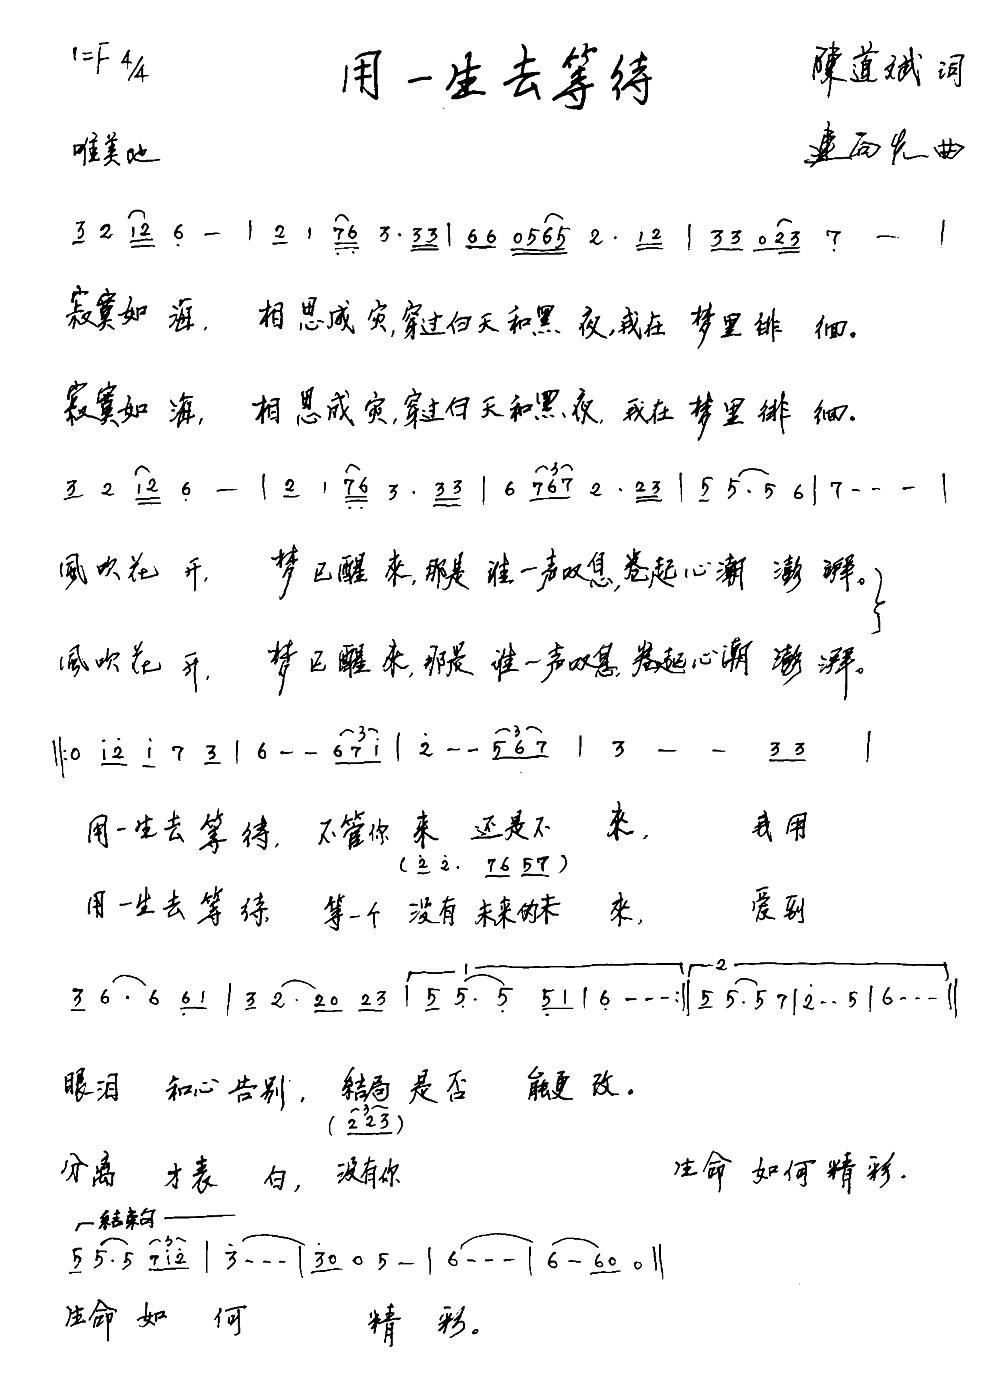 1=F 4/4 用一生去等待 陳道斌 词
唯美地 曲
3 2 12 6 - | 2 1 76 3. 33 | 66 0565 2. 12 | 33 023 7 - |
寂寞如 海, 相 思成 灾,穿过白天和黑 夜,我在 梦里徘 徊。
寂寞如 海, 相 思成 灾,穿过白天和黑 夜, 我在 梦里徘 徊.
3 2 12 6 - | 2 1 76 3. 33 | 6 767 2. 23 | 5 5. 5 6 | 7 - - - |
風吹花 开, 梦 已醒 來,那是 谁一声叹息,卷起心潮 澎 湃。
風吹花 开, 梦 已醒 來,那是 谁一声叹息,卷起心潮 澎 湃。
||: 0 i2 i 7 3 | 6 - - 671 | 2 - - 567 | 3 - - 33 |
用一生去 等 待, 不管你 来 还是不 来, 我用
(2 2. 76 57)
用一生去 等待 等一个 没有 未来的未 來, 爱到
3 6. 6 61 | 3 2. 20 23 | 1 5 5. 5 51 | 6 - - - :|| 2 5 5. 5 7 | 2 - - 5 | 6 - - - ||
眼泪 和心告别, 结局 是否 能更 改.
(2 23)
分离 才表 白, 没有你 生命 如何 精彩.
结束句
5 5. 5 712 | 3 - - - | 30 0 5 - | 6 - - - | 6 - 60 0 ||
生命 如 何 精 彩。